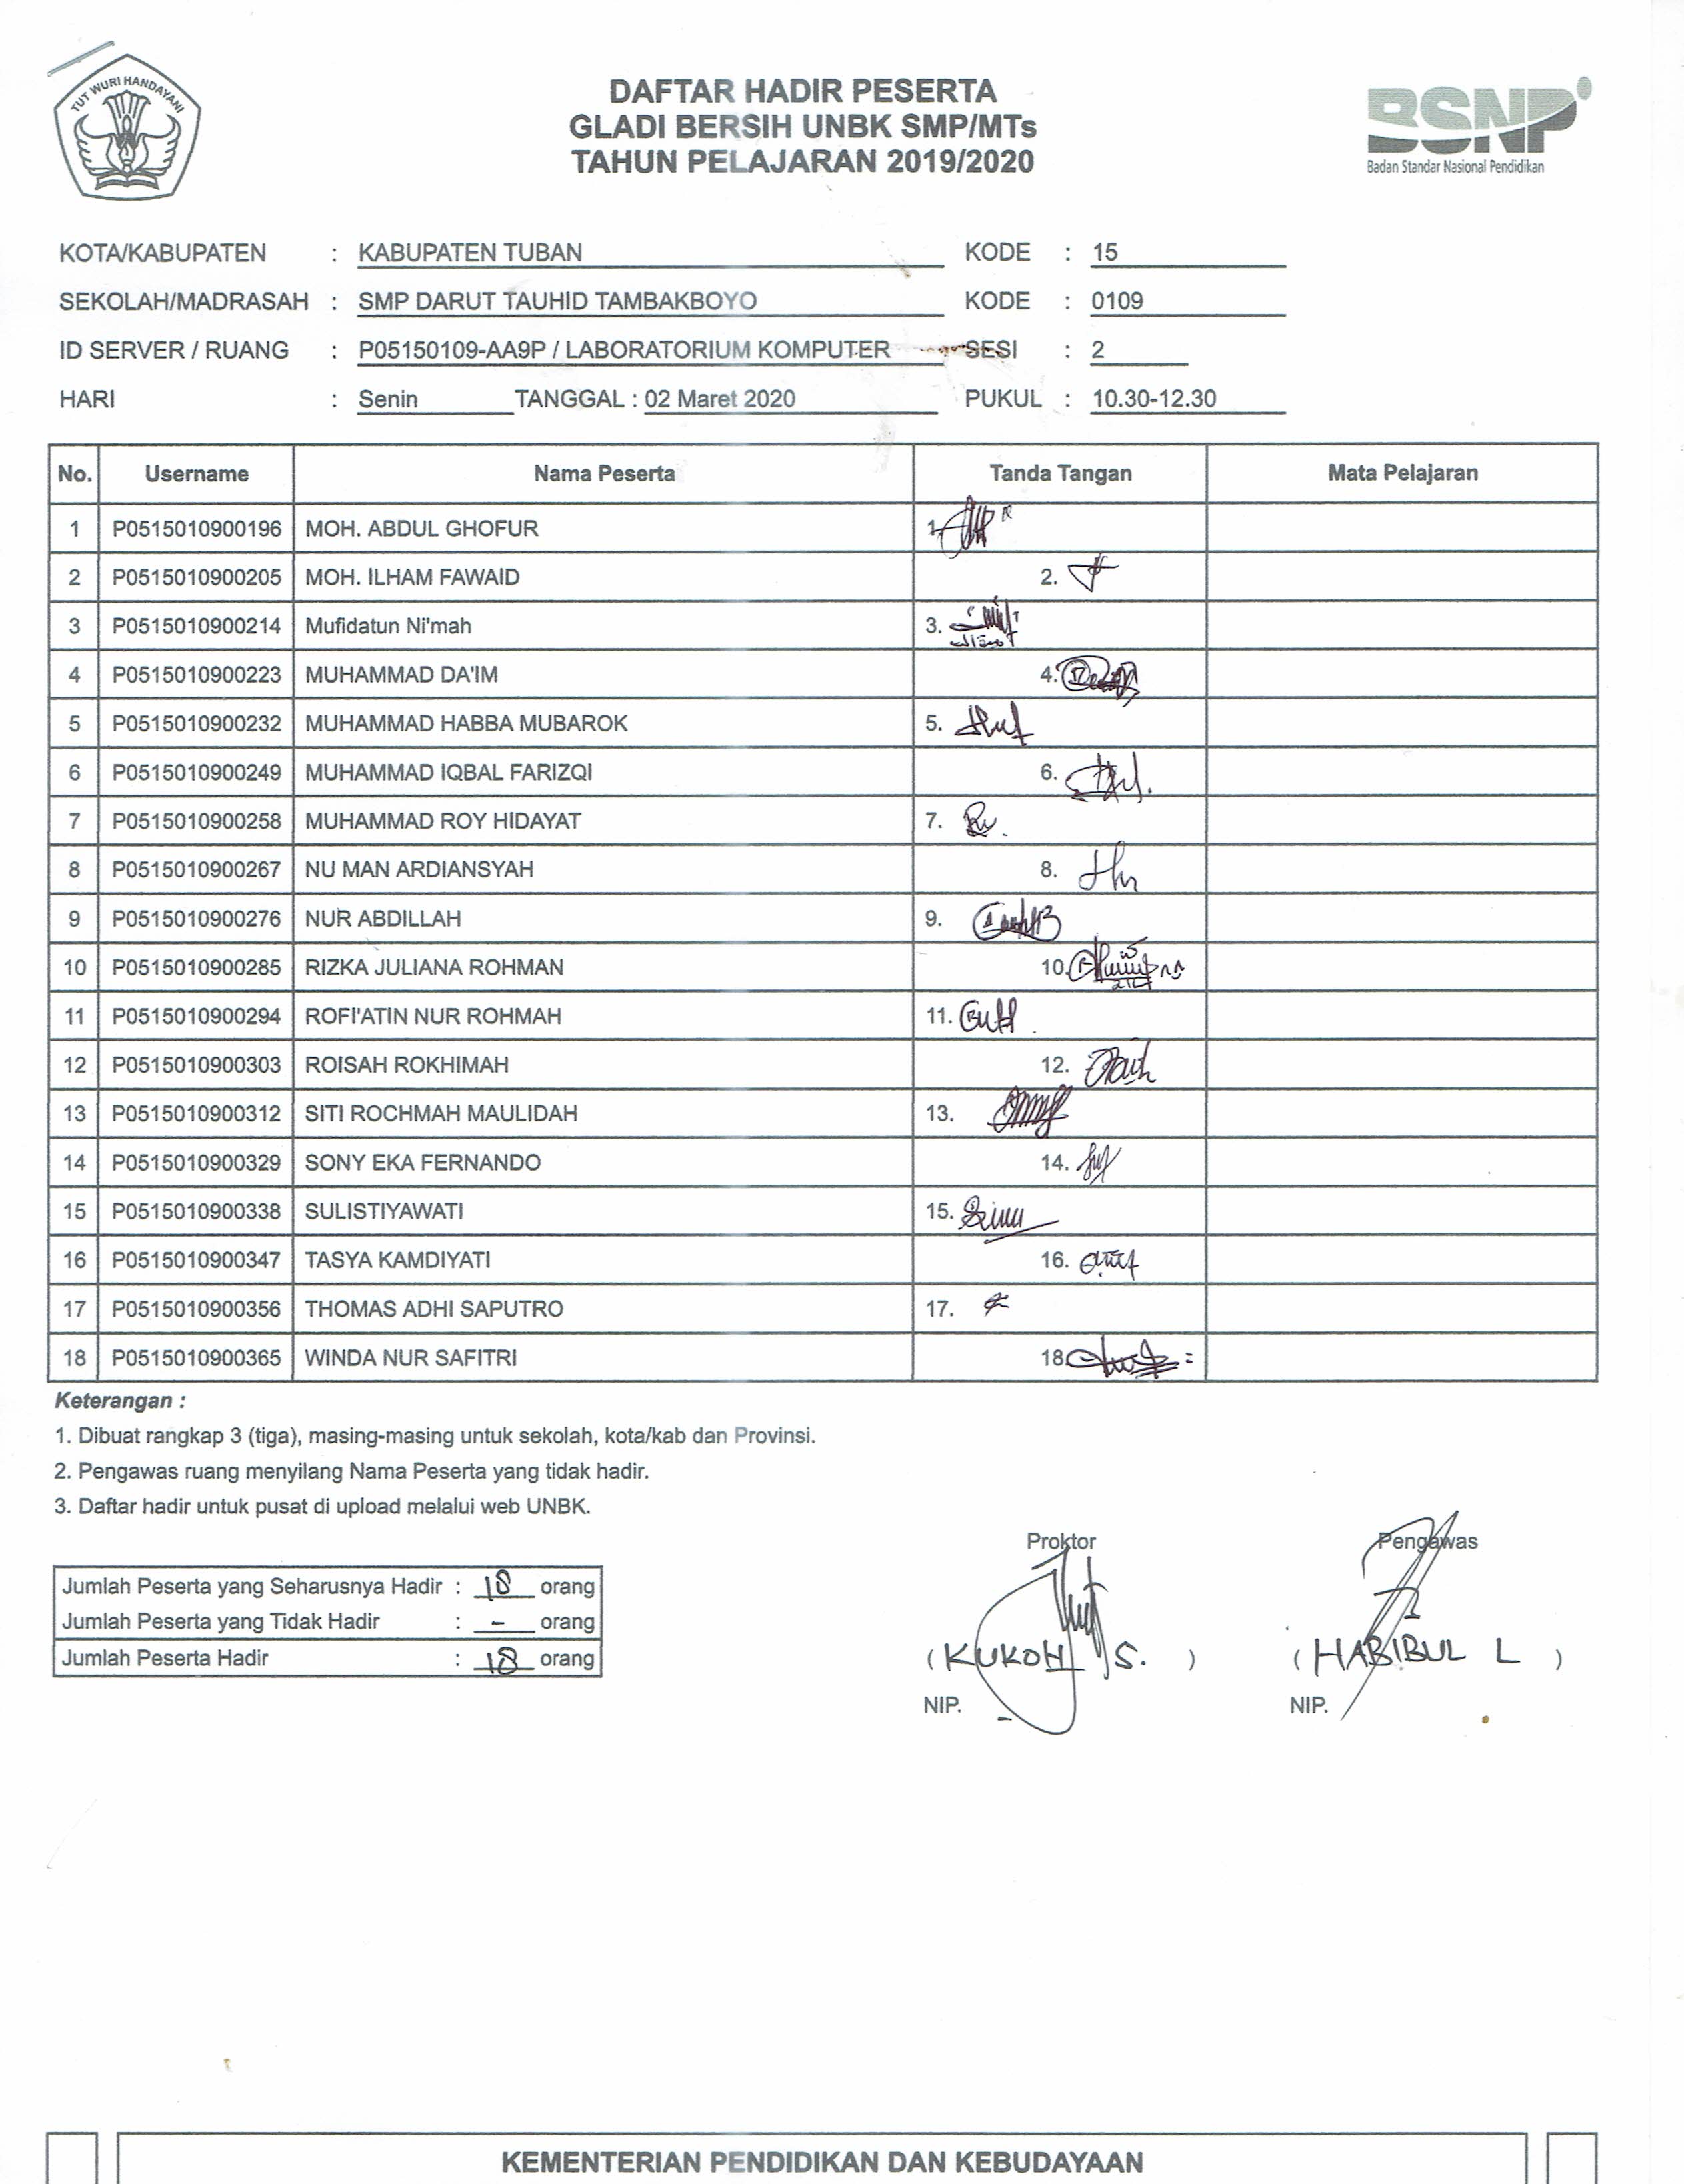 TUT WURI HANDAYANI
DAFTAR HADIR PESERTA
GLADI BERSIH UNBK SMP/MTs
TAHUN PELAJARAN 2019/2020
BSNP
Badan Standar Nasional Pendidikan
KOTA/KABUPATEN : KABUPATEN TUBAN KODE : 15
SEKOLAH/MADRASAH : SMP DARUT TAUHID TAMBAKBOYO KODE : 0109
ID SERVER / RUANG : P05150109-AA9P / LABORATORIUM KOMPUTER SESI : 2
HARI : Senin TANGGAL : 02 Maret 2020 PUKUL : 10.30-12.30
No. Username Nama Peserta Tanda Tangan Mata Pelajaran
1 P0515010900196 MOH. ABDUL GHOFUR 1.
2 P0515010900205 MOH. ILHAM FAWAID 2.
3 P0515010900214 Mufidatun Ni'mah 3.
4 P0515010900223 MUHAMMAD DA'IM 4.
5 P0515010900232 MUHAMMAD HABBA MUBAROK 5.
6 P0515010900249 MUHAMMAD IQBAL FARIZQI 6.
7 P0515010900258 MUHAMMAD ROY HIDAYAT 7.
8 P0515010900267 NU MAN ARDIANSYAH 8.
9 P0515010900276 NUR ABDILLAH 9.
10 P0515010900285 RIZKA JULIANA ROHMAN 10.
11 P0515010900294 ROFI'ATIN NUR ROHMAH 11.
12 P0515010900303 ROISAH ROKHIMAH 12.
13 P0515010900312 SITI ROCHMAH MAULIDAH 13.
14 P0515010900329 SONY EKA FERNANDO 14.
15 P0515010900338 SULISTIYAWATI 15.
16 P0515010900347 TASYA KAMDIYATI 16.
17 P0515010900356 THOMAS ADHI SAPUTRO 17.
18 P0515010900365 WINDA NUR SAFITRI 18.
Keterangan :
1. Dibuat rangkap 3 (tiga), masing-masing untuk sekolah, kota/kab dan Provinsi.
2. Pengawas ruang menyilang Nama Peserta yang tidak hadir.
3. Daftar hadir untuk pusat di upload melalui web UNBK.
Proktor Pengawas
Jumlah Peserta yang Seharusnya Hadir : 18 orang
Jumlah Peserta yang Tidak Hadir : - orang
Jumlah Peserta Hadir : 18 orang
( KUKOH S. ) ( HABIBUL L )
NIP. - NIP.
KEMENTERIAN PENDIDIKAN DAN KEBUDAYAAN